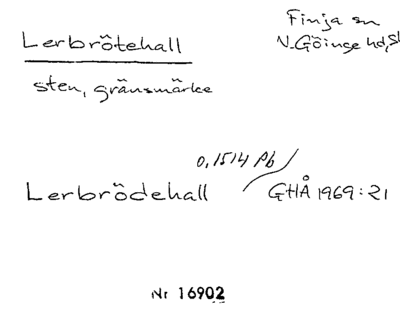 Lerbrötehall
Finja sn
N. Göinge hd, Sk
sten, gränsmärke
0, 1514 Pb
Lerbrödehall
GHÅ 1969:21
Nr 16902